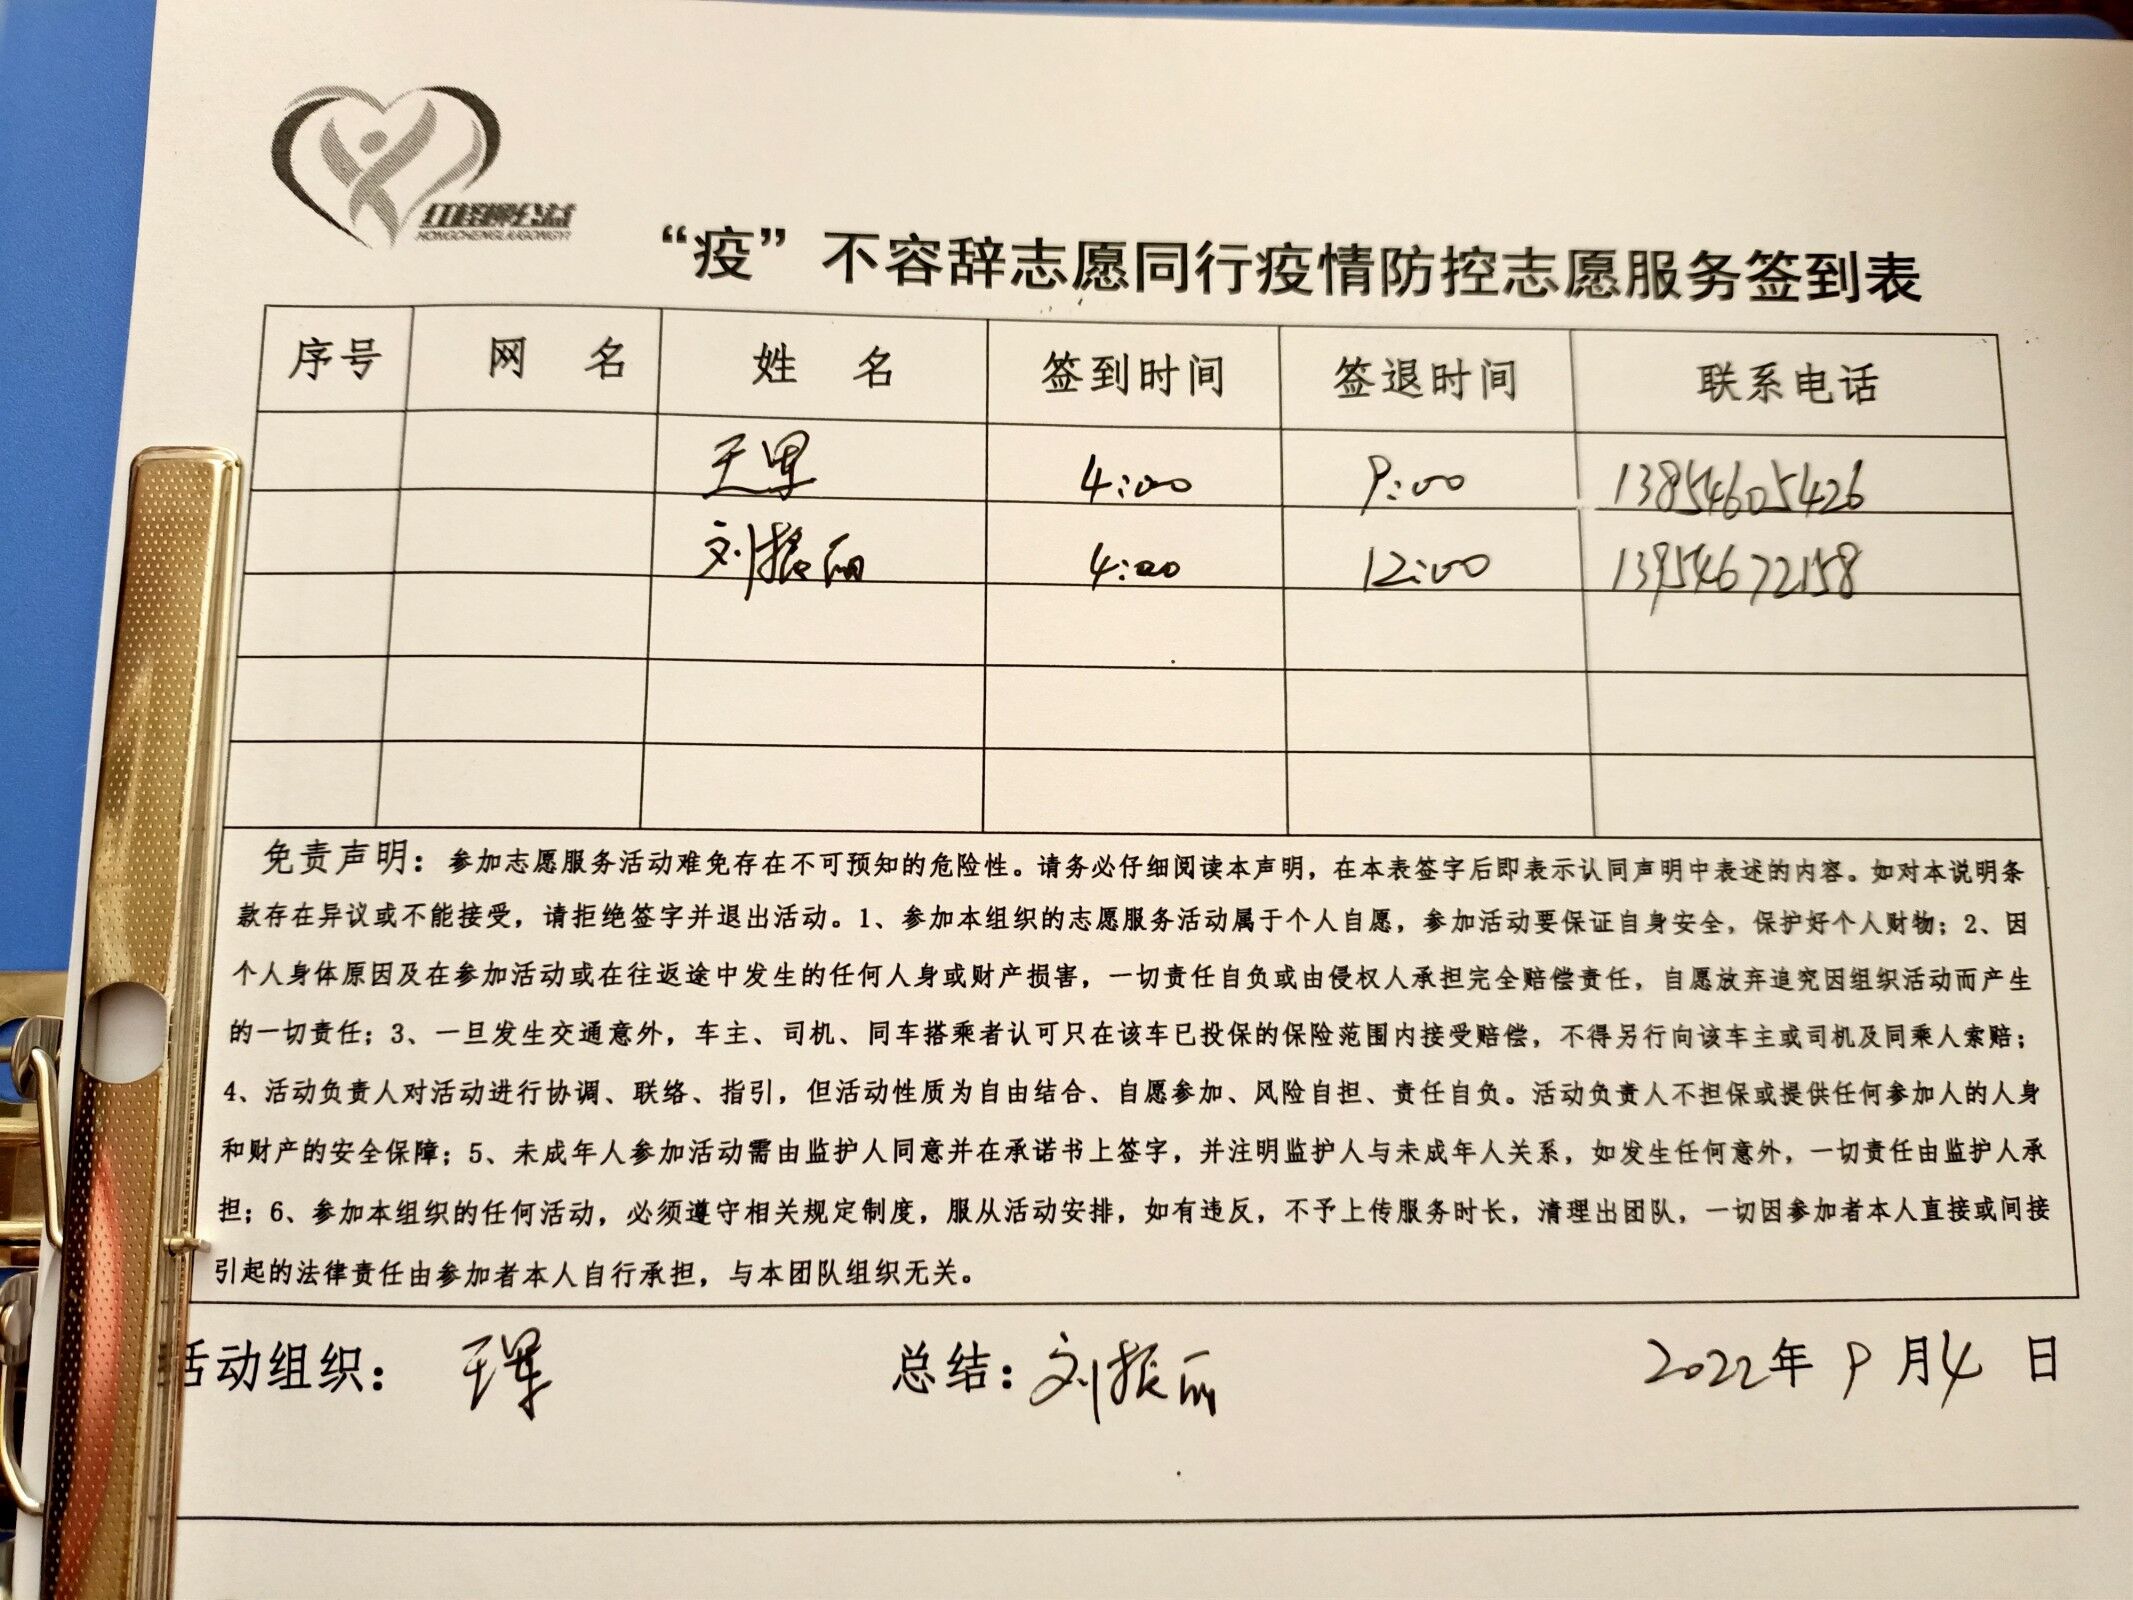 红橙狮公益
HONGCHENGSHIGONGYI
“疫”不容辞志愿同行疫情防控志愿服务签到表
序号 网 名 姓 名 签到时间 签退时间 联系电话
4:00 9:00 13854605426
刘振丽 4:00 12:00 13954672158
免责声明：参加志愿服务活动难免存在不可预知的危险性。请务必仔细阅读本声明，在本表签字后即表示认同声明中表述的内容。如对本说明条
款存在异议或不能接受，请拒绝签字并退出活动。1、参加本组织的志愿服务活动属于个人自愿，参加活动要保证自身安全，保护好个人财物；2、因
个人身体原因及在参加活动或在往返途中发生的任何人身或财产损害，一切责任自负或由侵权人承担完全赔偿责任，自愿放弃追究因组织活动而产生
的一切责任；3、一旦发生交通意外，车主、司机、同车搭乘者认可只在该车已投保的保险范围内接受赔偿，不得另行向该车主或司机及同乘人索赔；
4、活动负责人对活动进行协调、联络、指引，但活动性质为自由结合、自愿参加、风险自担、责任自负。活动负责人不担保或提供任何参加人的人身
和财产的安全保障；5、未成年人参加活动需由监护人同意并在承诺书上签字，并注明监护人与未成年人关系，如发生任何意外，一切责任由监护人承
担；6、参加本组织的任何活动，必须遵守相关规定制度，服从活动安排，如有违反，不予上传服务时长，清理出团队，一切因参加者本人直接或间接
引起的法律责任由参加者本人自行承担，与本团队组织无关。
活动组织： 总结：刘振丽 2022年 9 月4 日